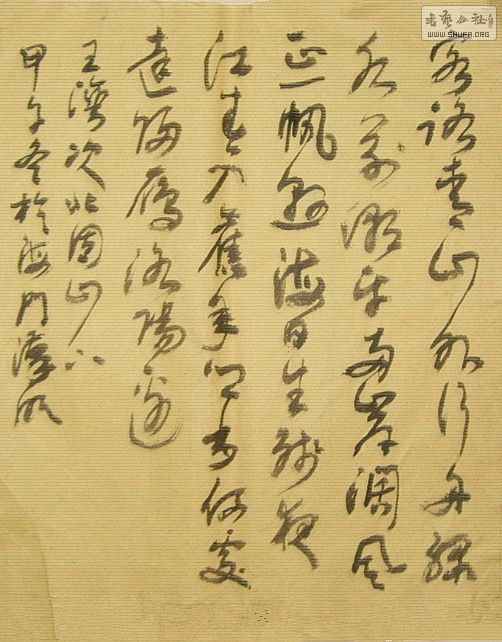 書藝公社
WWW.SHUFA.ORG
客路青山外行舟綠
水前潮平兩岸濶風
正一帆懸海日生殘夜
江春入舊年鄉書何處
達歸雁洛陽邊
王灣次北固山下
甲午冬於海門